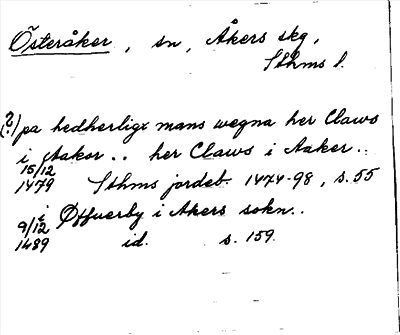 Österåker, sn, Åkers skg,
Sthms l.
(?) pa hedherligx mans wegna her Claws
i Aakor.. her Claws i Aaker..
15/12 1479 Sthms jordeb. 1474-98, s. 55
i Øffuerby i Akers sokn..
9/12 1489 id. s. 159.